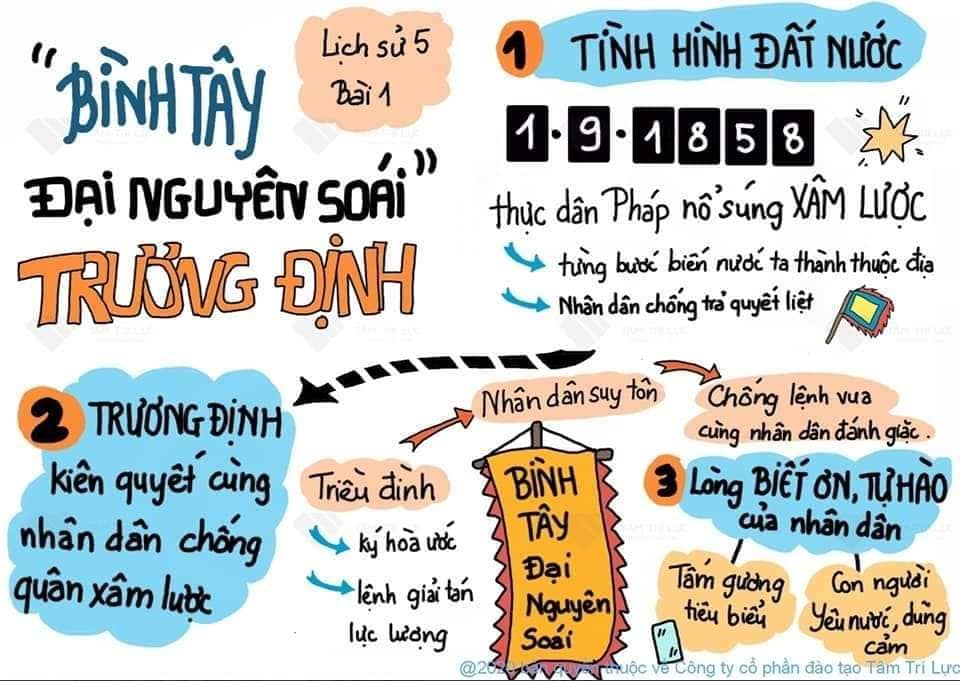 "BÌNH TÂY
ĐẠI NGUYÊN SOÁI"
TRƯỞNG ĐỊNH
Lịch sử 5
Bài 1
1 TÌNH HÌNH ĐẤT NƯỚC
1.9.1858
thực dân Pháp nổ súng XÂM LƯỢC
từng bước biến nước ta thành thuộc địa
Nhân dân chống trả quyết liệt
2 TRƯƠNG ĐỊNH
kiên quyết cùng
nhân dân chống
quân xâm lược
Triều đình
ký hoà ước
lệnh giải tán
lực lượng
Nhân dân suy tôn
BÌNH
TÂY
Đại
Nguyên
Soái
Chống lệnh vua
cùng nhân dân đánh giặc.
3 Lòng BIẾT ƠN, TỰ HÀO
của nhân dân
Tấm gương
tiêu biểu
Con người
Yêu nước, dũng
cảm
bản quyền thuộc về Công ty cổ phần đào tạo Tâm Trí Lực